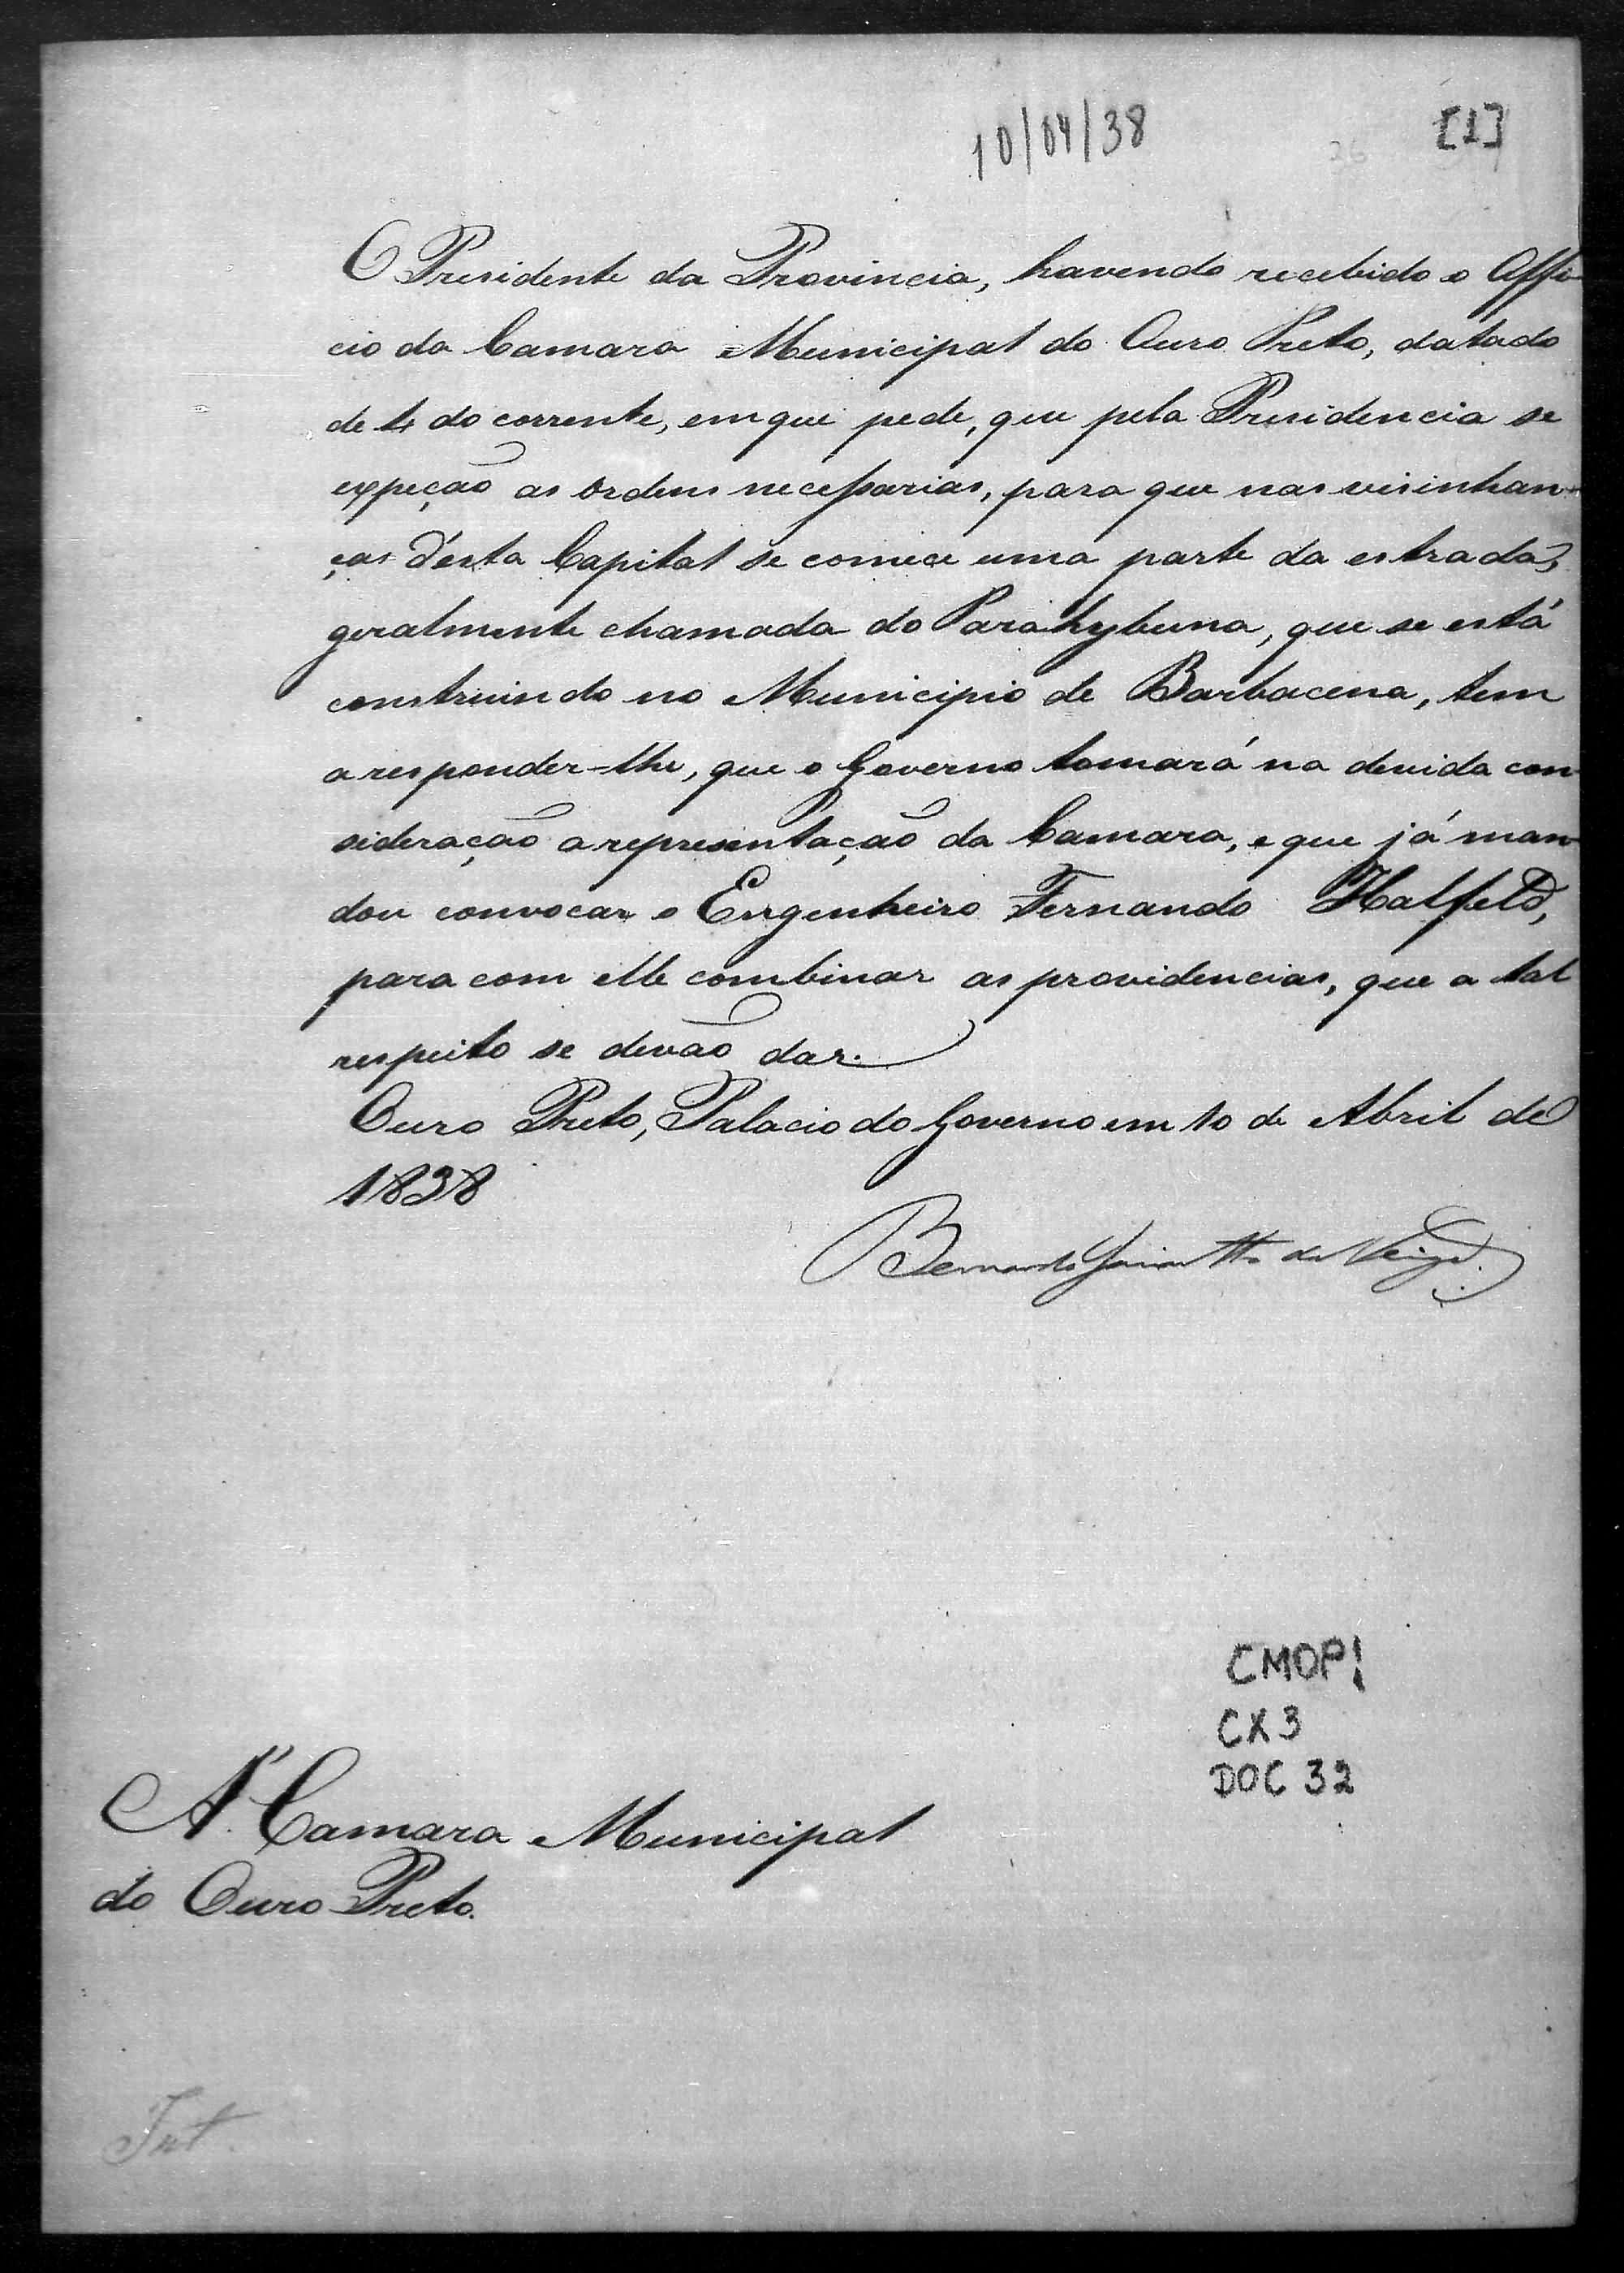 10/04/38
[1]
26
O Presidente da Provincia, havendo recebido o Offi-
cio da Camara Municipal do Ouro Preto, datado
de 4 do corrente, em que pede, que pela Presidencia se
expeção as Ordens necessarias, para que nas visinhan-
ças d'esta Capital se comece uma parte da estrada,
geralmente chamada do Parahybuna, que se está
construindo no Municipio de Barbacena, tem
a responder-lhe, que o Governo tomará na devida con-
sideração a representação da Camara, e que já man-
dou convocar o Engenheiro Fernando Halfeld,
para com elle combinar as providencias, que a tal
respeito se devão dar.
Ouro Preto, Palacio do Governo em 10 de Abril de
1838
Bernardo Jacintho da Veiga.
CMOP
CX 3
DOC 32
A' Camara Municipal
do Ouro Preto.